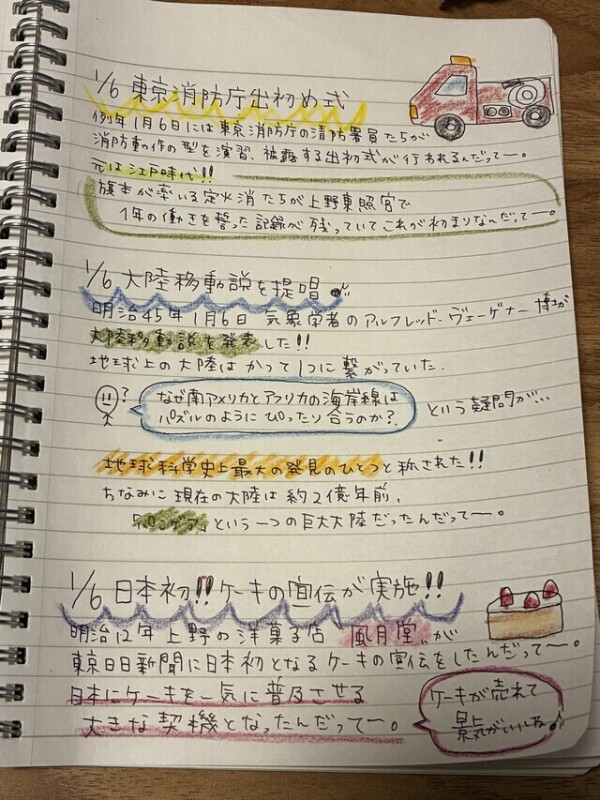 1/6 東京消防庁出初め式
例年1月6日には東京消防庁の消防署員たちが
消防動作の型を演習、披露する出初式が行われるんだってー。
元は江戸時代!!
旗本が率いる定火消たちが上野東照宮で
1年の働きを誓った記録が残っていてこれが初まりなんだってー。
1/6 大陸移動説を提唱
明治45年1月6日 気象学者のアルフレッド・ヴェーゲナー博士が
大陸移動説を発表した!!
地球上の大陸はかつて1つに繋がっていた.
?
なぜ南アメリカとアフリカの海岸線は
パズルのようにぴったり合うのか?
という疑問が...
地球科学史上最大の発見のひとつと称された!!
ちなみに現在の大陸は約2億年前、
「パンゲア」という一つの巨大大陸だったんだってー。
1/6 日本初!!ケーキの宣伝が実施!!
明治12年上野の洋菓子店 風月堂 が
東京日日新聞に日本初となるケーキの宣伝をしたんだってー。
日本にケーキを一気に普及させる
大きな契機となったんだってー。
ケーキが売れて
景気がいいね♪